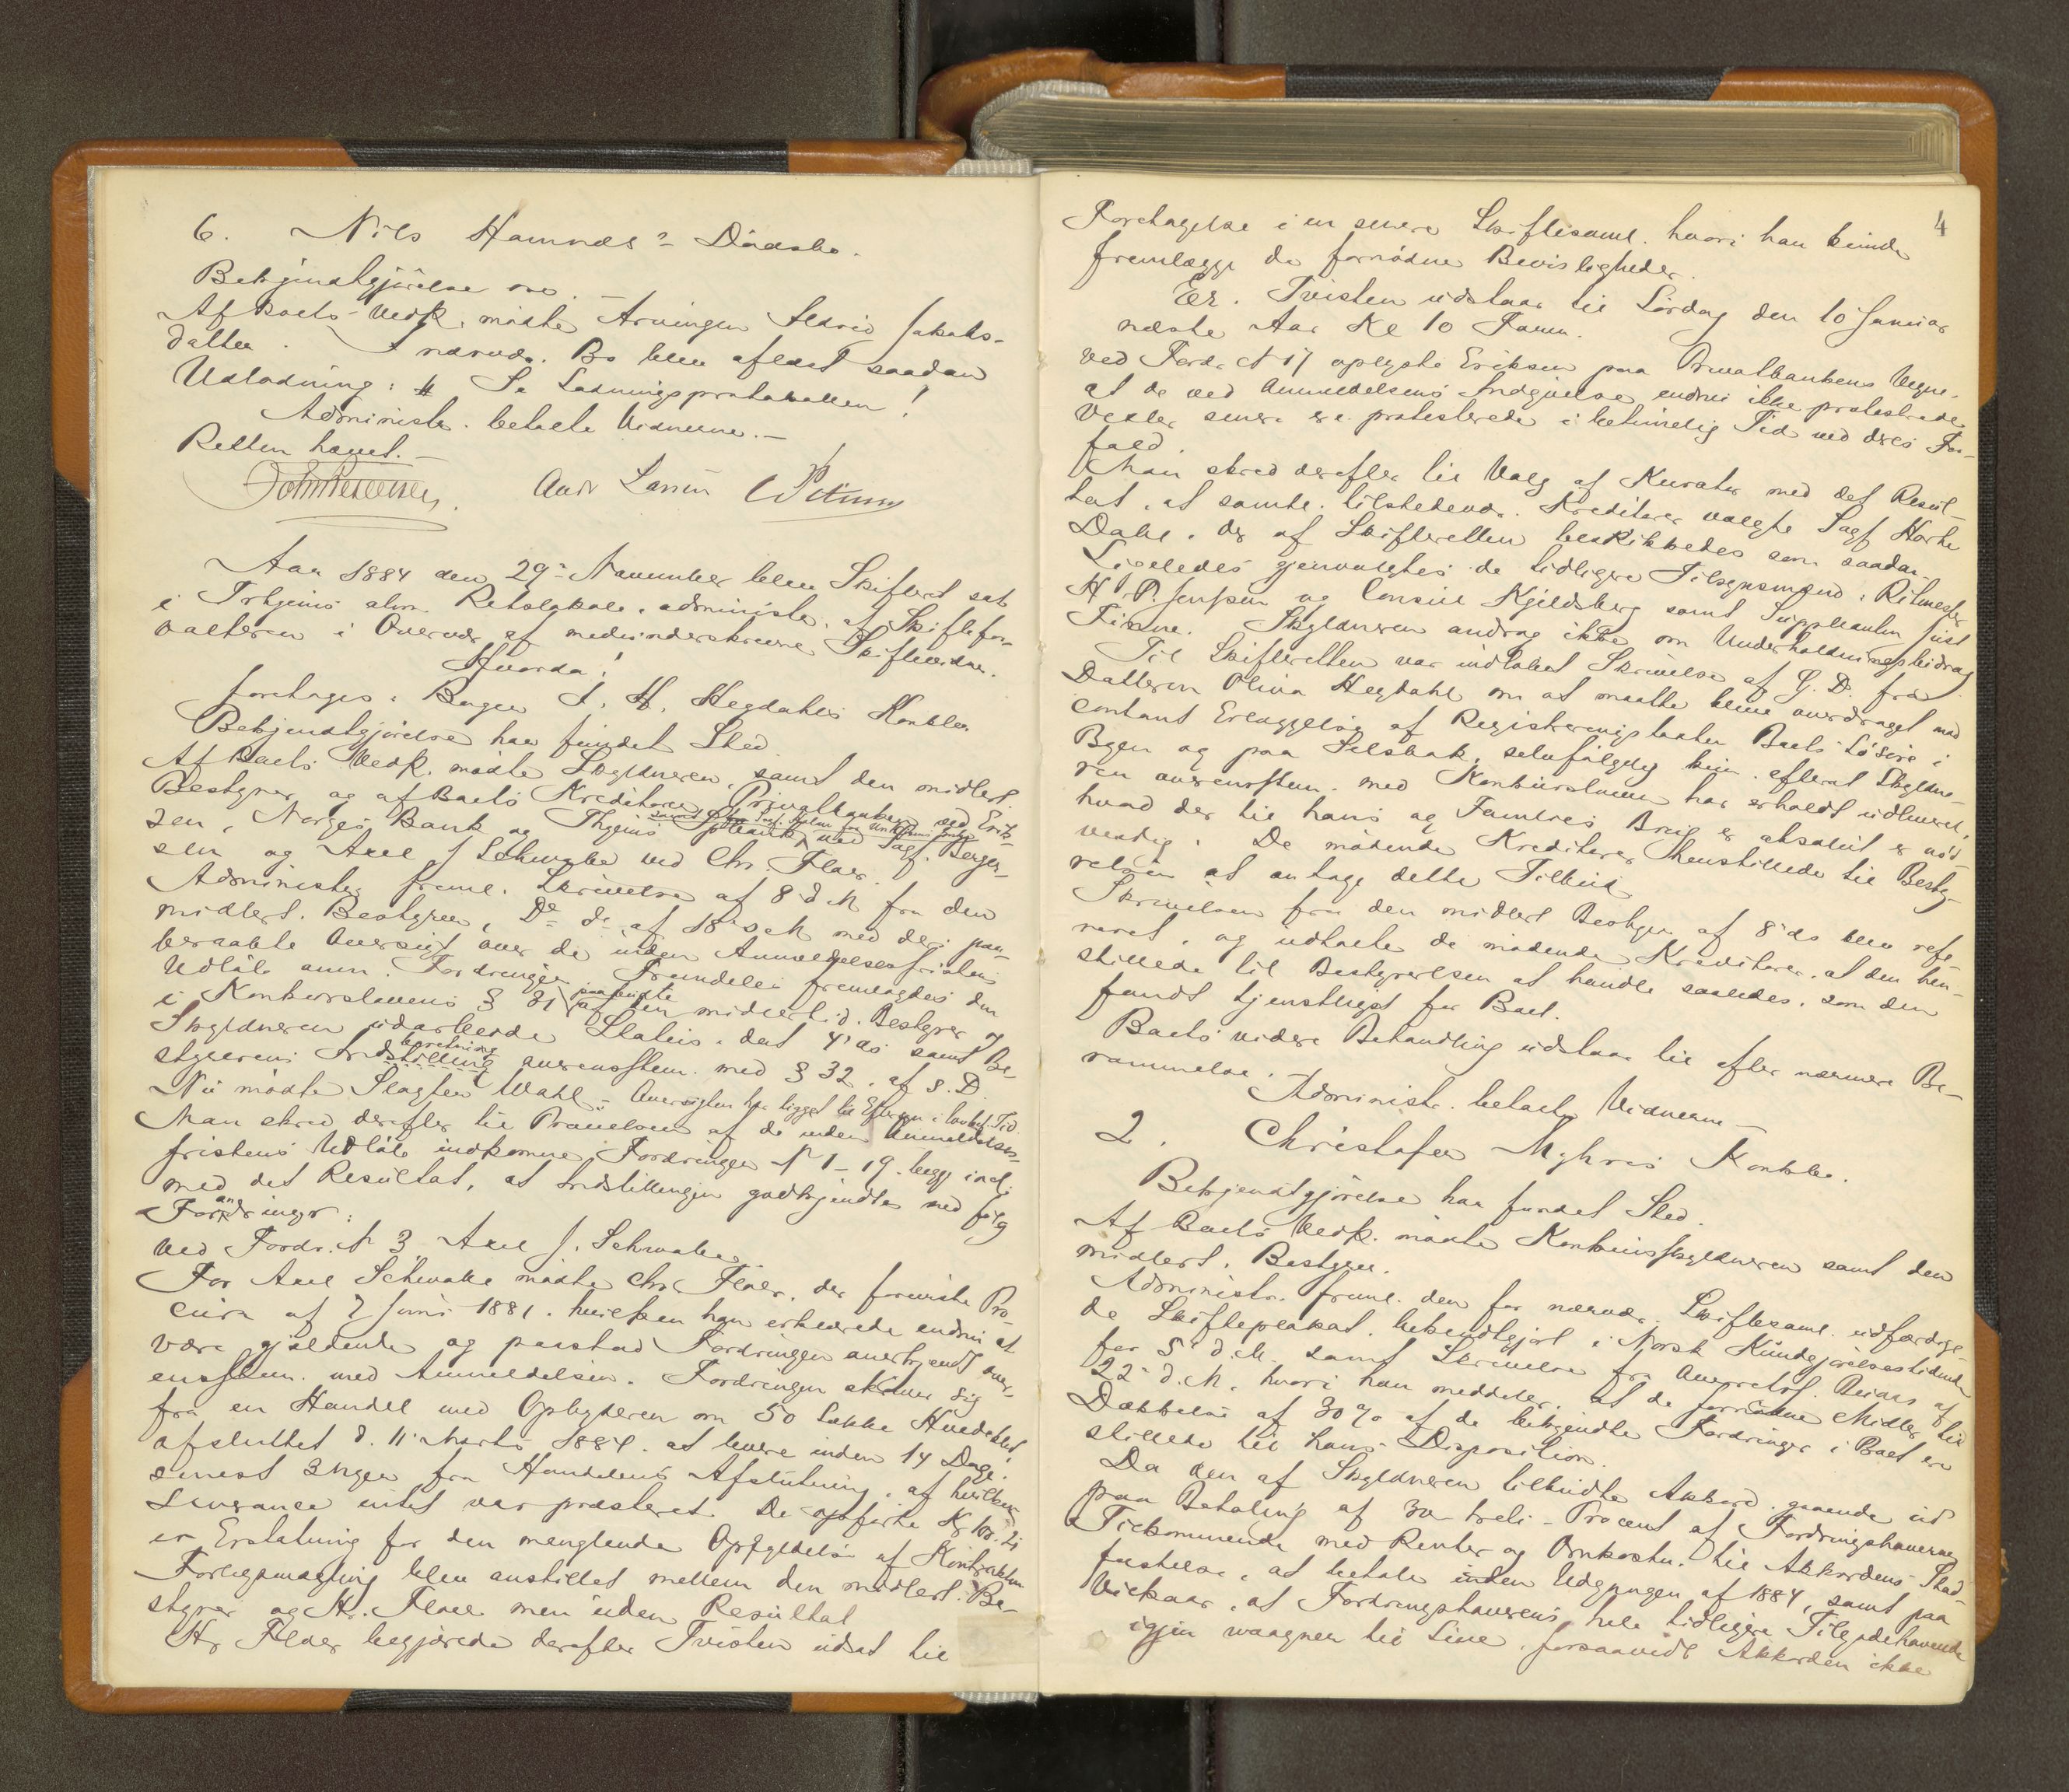 6. Nils Hamnæs' Dödsbo.
Bekjendtgjörelse do. —
Af Boets Vedk. mödte Arvingen Jakobs-
datter. I nærvær. Bo blev aflæst saadan
Udlodning: Se Lodningsprotokollen!
Administr. betalte Vidnerne. —
Retten hævet. —
Aar 1884 den 29de November blev Skifteret sat
i Trhjems alm. Retslokale, administr. af Skiftefor-
valteren i Overvær af medunderskrevne Skiftevidner.
Hvorda!
foretoges: Bager I. H. Hegdahls Konkbo.
Bekjendtgjörelse har fundet Sted
Af Boets Vedk. mödte Skyldneren, samt den midlert.
Bestyrer, og af Boets Kreditorer Privatbanken ved Erik-
sen, Norges Bank og Thjems Spbank, ved Sagf. Berger-
sen og Axel J Schwabe ved Chr. Floer.
Administr. freml. Skrivelse af 8 d M fra den
midlert. Bestyrer, Do do af 18 d M med deri paa-
beraabte Oversigt over de inden Anmeldelsesfristens
Udlöb anm. Fordringer. Fremdeles fremlagdes den
i Konkurslovens § 31 paabudte af den midlertid. Bestyrer og
Skyldneren udarbeide Status, dat 4' ds samt Be-
styrerens Indstilling beretning overensstem. med § 32, af s. D.
Nu mödte Slagter Wahl. — Oversigten har ligget til Eftersyn i lovbest. Tid.
Man skred derefter til Prövelsen af de inden Anmeldelses-
fristens Udlöb indkomne Fordringer No 1-19 begge incl.
med det Resultat, at Indstillingen godkjendtes med fölg
Forandringer:
Ved Fordr. No 3 Axel J. Schwabe
For Axel Schwabe mödte Chr Floer, der foreviste Pro-
cura af 7 Juni 1881, hvilken han erklærede endnu at
være gjældende og paastod Fordringen anerkjendt over-
ensstem. med Anmeldelsen. Fordringen skriver sig
fra en Handel med Opbyderen om 50 Sække Hvedemel,
afsluttet d. 11 Marts 1884. at levere inden 14 Dage,
senest 3 Uger fra Handelens Afslutning, af hvilken
Leverance intet var præsteret. De opförte Kr
er Erstatning for den manglende Opfyldelse af Kontrakten
Forligsmægling blev anstillet mellem den midlert. Be-
styrer og Hr. Floer men uden Resultat
Hr Floer begjærede derefter Tvisten udsat til
4
Foretagelse i en senere Skiftesaml. hvori han kunde
fremlægge de fornödne Bevisligheder.
Er. Tvisten udstaar til Lördag den 10 Januar
næste Aar Kl 10 Form.
Ved Fordr. No 17 oplyste Eriksen paa Privatbankens Vegne,
at de ved Anmeldelsens Indgivelse endnu ikke protesterede
Vexler senere ere protesterede i betimelig Tid ved deres For-
fald.
Man skred derefter til Valg af Kurator med det Resul-
tat, at samtl. tilstedevær. Kreditorer valgte Sagf Harbo
Dahl, der af Skifteretten beskikkedes som saadan.
Ligeledes gjenvalgtes de tidligere Tilsynsmænd: Ritmester
H. P. Jenssen og Consul Kjeldsberg samt Suppleanten Just
Finne. Skyldneren androg ikke om Underholdningsbidrag
Til Skifteretten var indlöbet Skrivelse af G. D. fra
Datteren Olina Hegdahl om at maatte blive overdraget mod
contant Erlæggelse af Registreringstaxten Boets Lösöre i
Byen og paa Selsbak, selvfölgelig kun, efterat Skyldne-
ren overensstem. med Konkursloven har erholdt udleveret,
hvad der til hans og Families Brug er absolut er nöd-
vendig. De mödende Kreditorer henstillede til Besty-
relsen at antage dette Tilbud
Skrivelsen fra den midlert Bestyrer af 8' ds blev refe-
reret, og udtalte de mödende Kreditorer, at den hen-
stillede til Bestyrelsen at handle saaledes, som den
fandt tjenstligst for Boet.
Boets videre Behandling udstaar til efter nærmere Be-
rammelse.
Administr. betalte Vidnerne —
2. Christofer Myhres Konkbo.
Bekjendtgjörelse har fundet Sted.
Af Boets Vedk. mödte Konkursskyldneren samt den
midlert. Bestyrer.
Administr. freml. den for nærvær. Skiftesaml. udfærdige-
de Skifteplakat, bekendtgjort i Norsk Kundgjörelsestidende
for 5' d. M. samt Skrivelse fra Overretssf. af
22 d. M. hvori han meddeler, at de fornödne Midler til
Dækkelse af 30 % af de bekjendte Fordringer i Boet er
stillede til hans Disposition.
Da den af Skyldneren tilbudte Akkord, gaaende ud
paa Betaling af 30 - treti - Procent af Fordringshaverne
Tilkommende med Renter og Omkostn. til Akkordens Stad-
fæstelse, at betale inden Udgangen af 1884, samt paa
Vilkaar, at Fordringshaverens hele tidligere Tilgodehavende
igjen vaagner til Live, forsaavidt Akkorden ikke